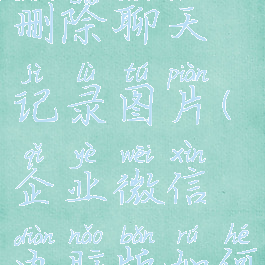 删除聊天
jì lù tú piàn
记录图片(
qǐ yè wēi xìn
企业微信
diàn nǎo bǎn rú hé
电脑版如何